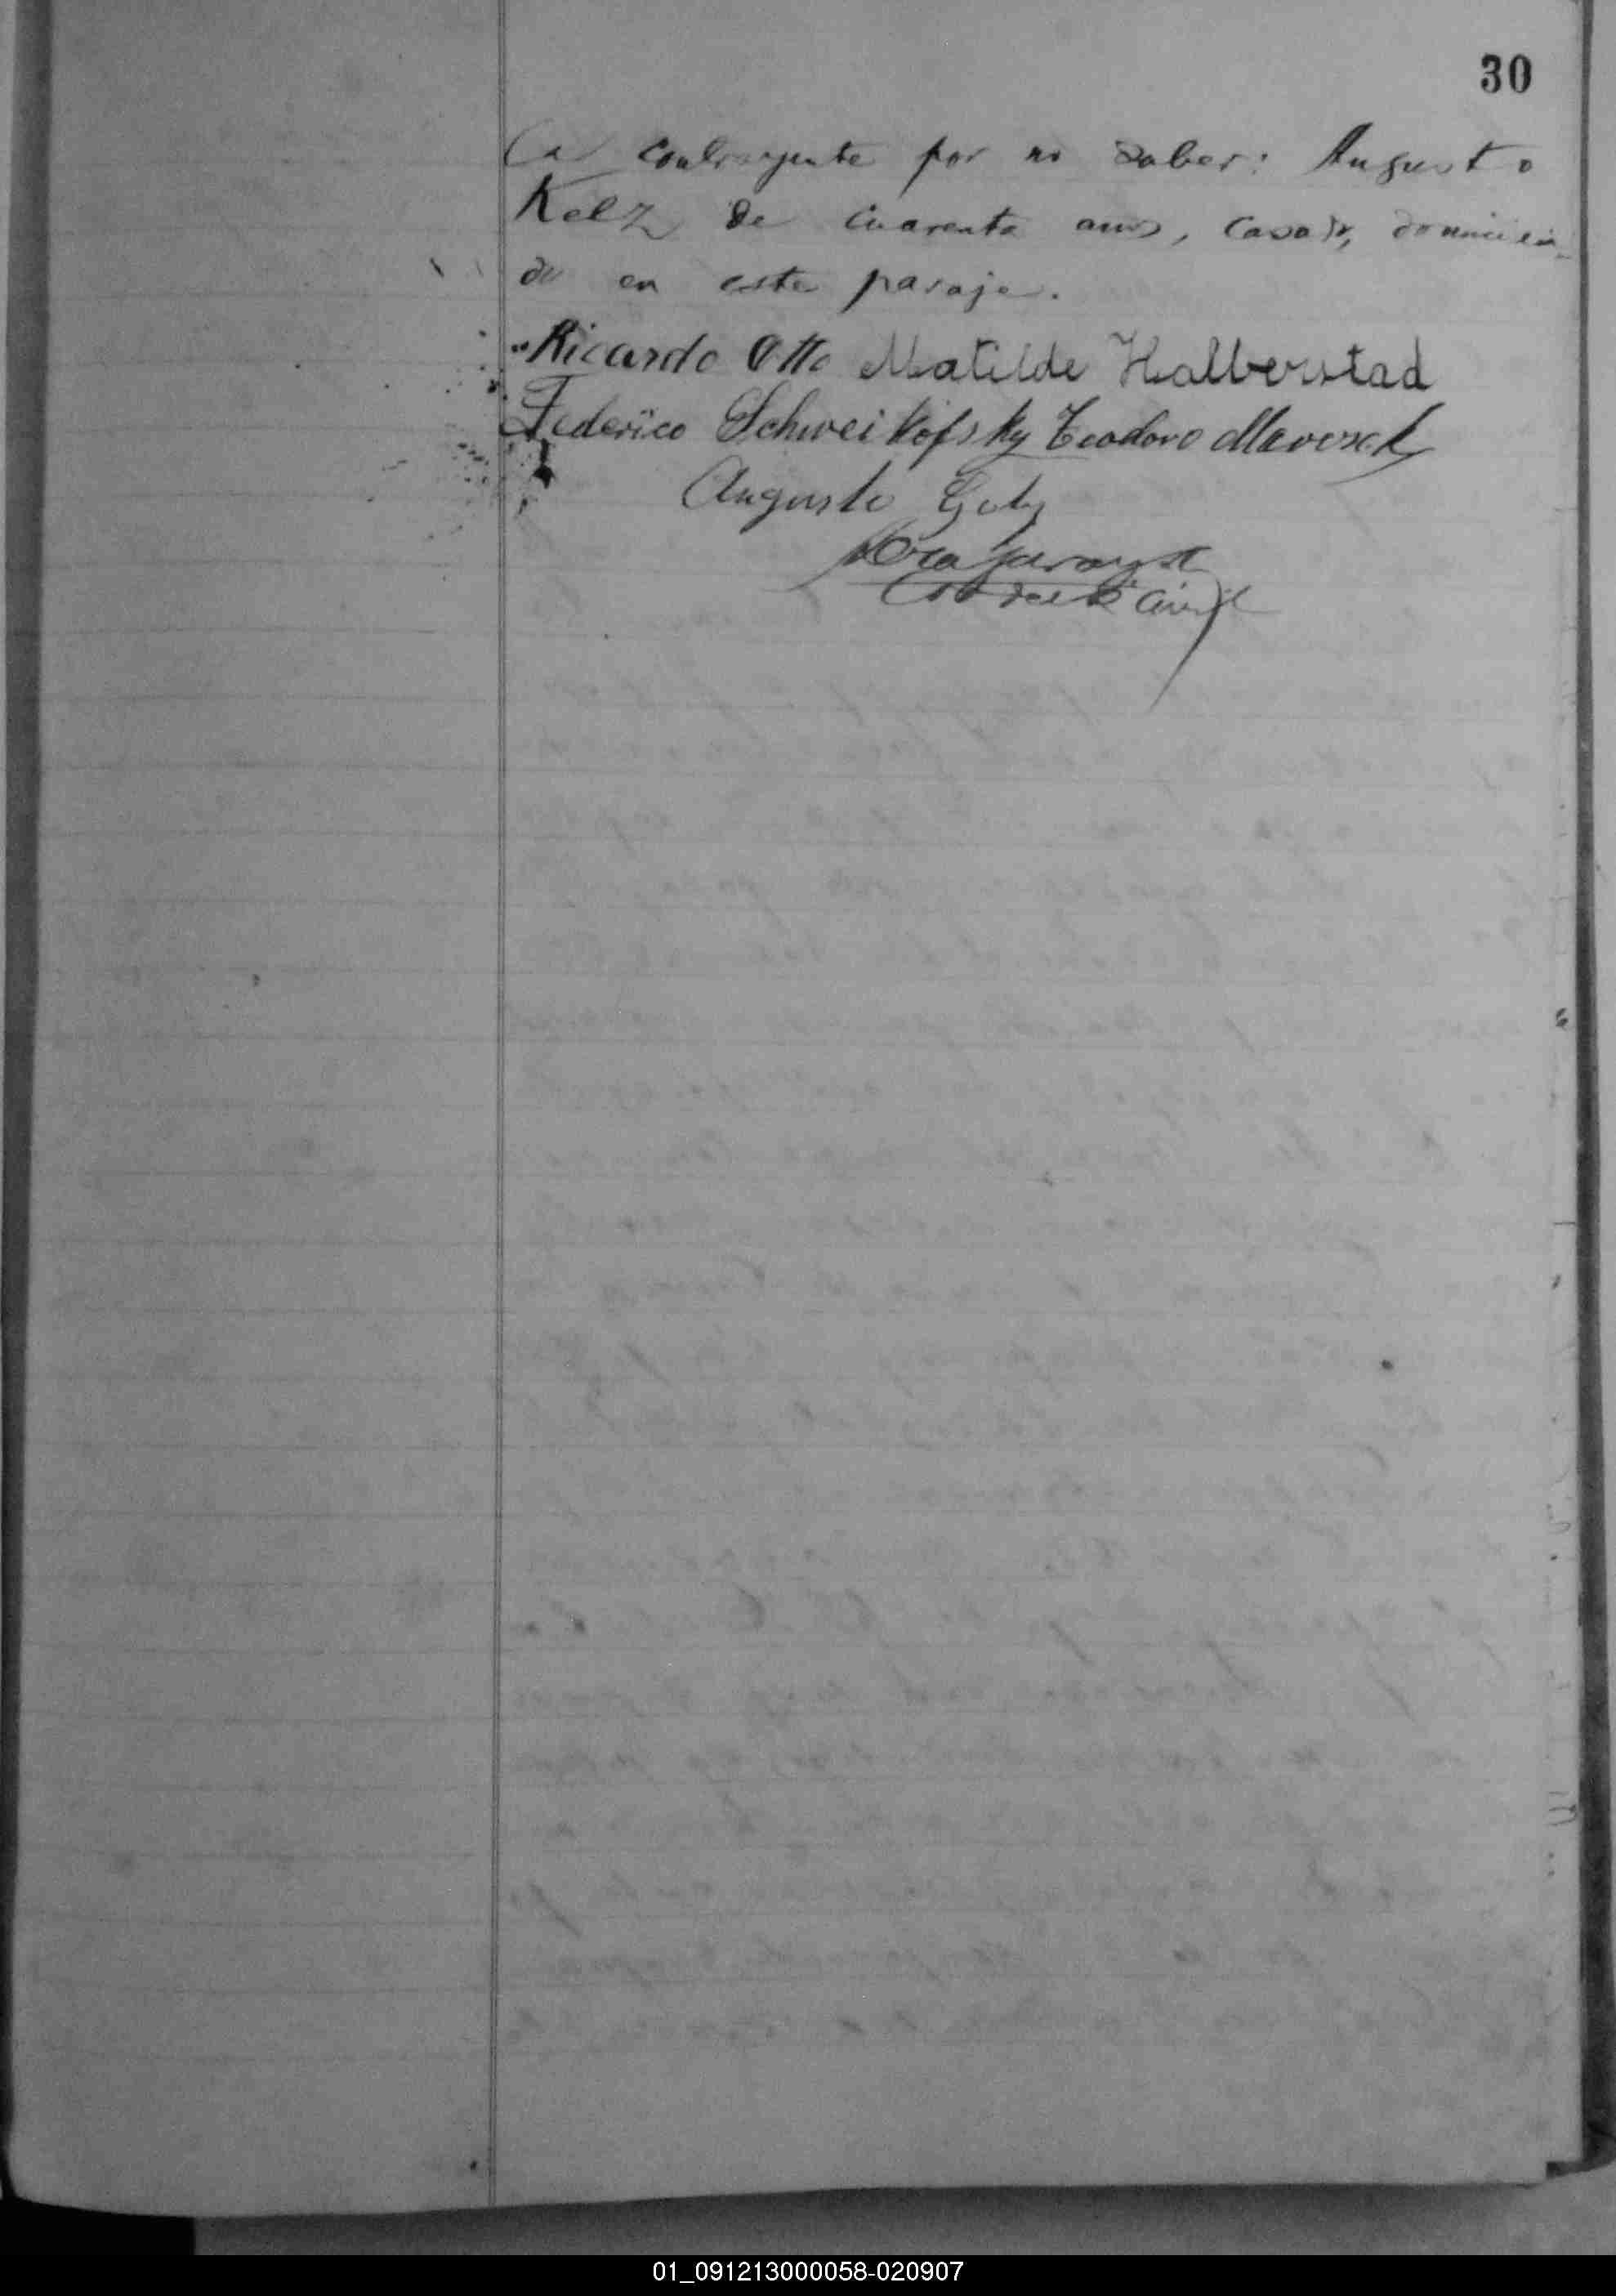 30
la contrayente por no saber: Augusto
Kelz de cuarenta anos, casado, domicilia
do en este paraje.
Ricardo Otto Matilde Halberstad
Federico Schweikofsky Teodoro
Augusto
Civil
01_091213000058-020907